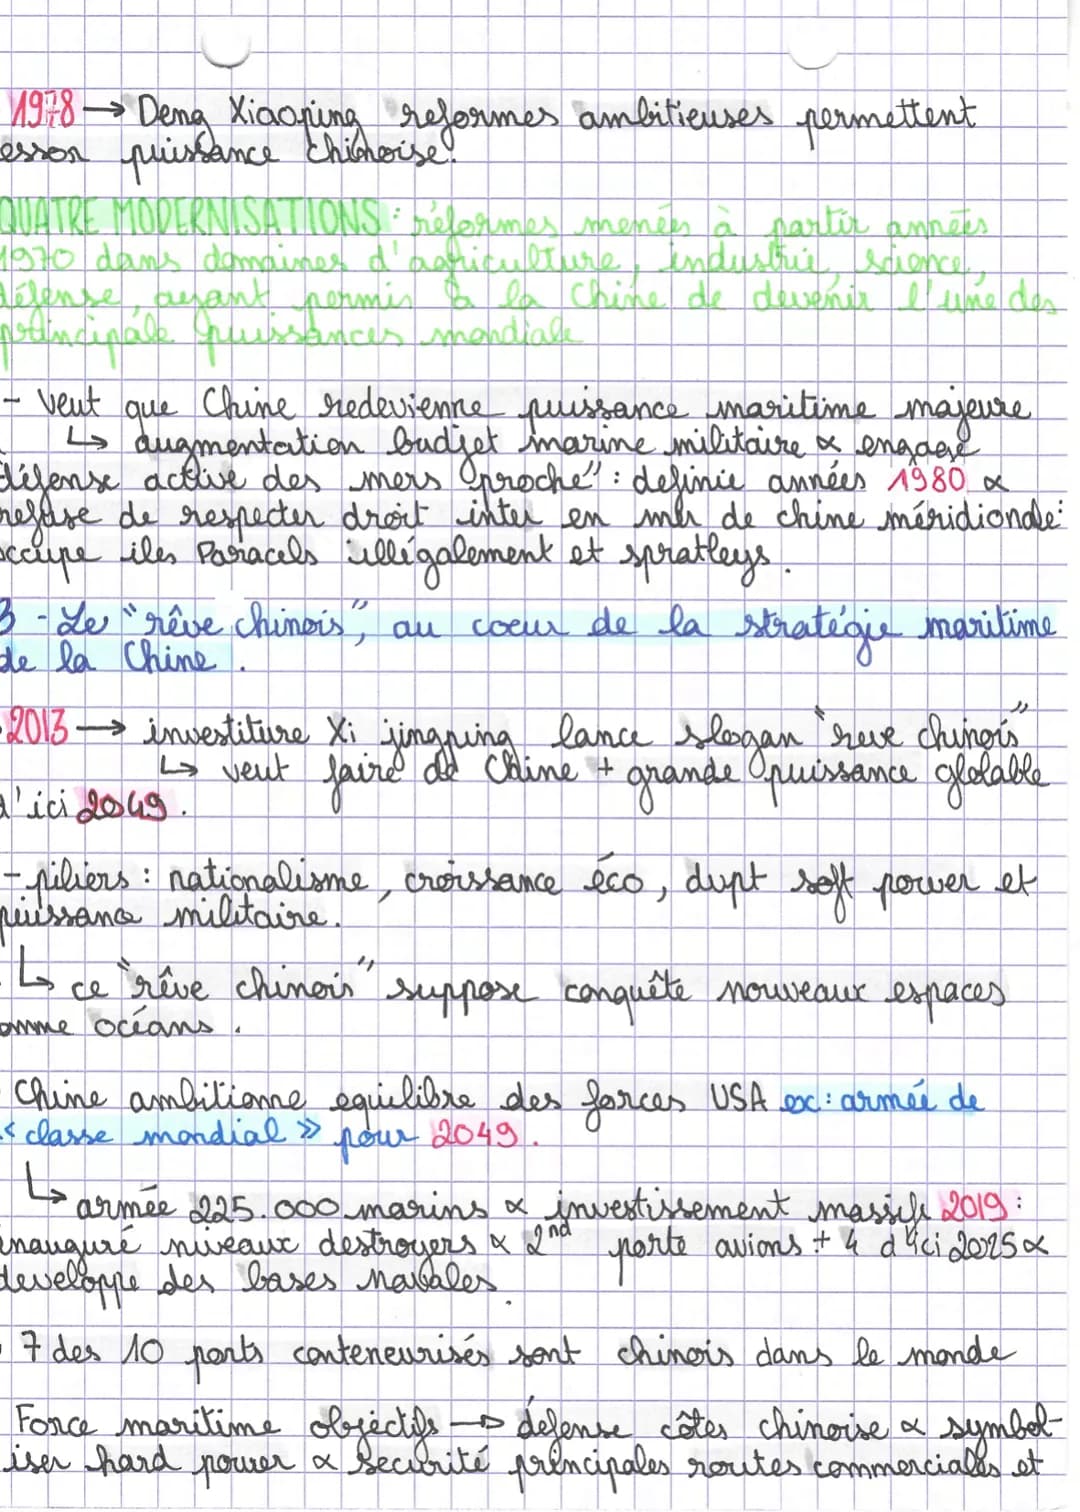 1978 → Deng Xiaoping reformes ambitieuses permettent
essor puissance chinoise.
QUATRE MODERNISATIONS : réformes menées à partir années
1970 dans domaines d'agriculture, industrie, science,
défense, ayant permis à la Chine de devenir l'une des
principale puissances mondiale
- Veut que Chine redevienne puissance maritime majeure
↳ augmentation budjet marine militaire & engage
défense active des mers proche" : definie années 1980 &
refuse de respecter droit inter en mer de chine méridionale :
occupe iles Paracels illégalement et spratleys.
3 - Le "rêve chinois", au coeur de la stratégie maritime
de la Chine.
- 2013 → investiture Xi jingping lance slogan "reve chinois"
↳ veut faire de Chine + grande puissance glolable
d'ici 2049.
- piliers : nationalisme, croissance éco, dvpt soft power et
puissance militaire.
↳ ce "rêve chinois" suppose conquête nouveaux espaces
omme océans.
Chine ambitionne equilibre des forces USA ex : armée de
« classe mondial » pour 2049.
↳ armée 225.000 marins & investissement massifs 2019 :
inauguré niveaux destroyers & 2nd porte avions + 4 d'ici 2025 &
developpe des bases navales.
- 7 des 10 ports conteneurisés sont chinois dans le monde
Force maritime objectifs → défense côtes chinoise & symbol-
iser hard power & securité principales routes commerciales et